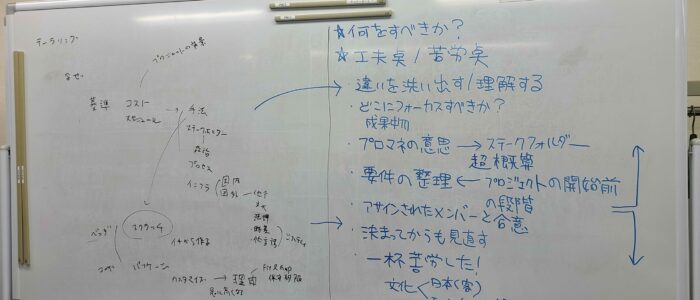 テーラリング
プロジェクトの背景
なぜ
基準
コスト
スケジュール
→ 手法
ステークホルダー
政治
プロセス
インフラ
国内
国外
スクラッチ
イチから作る
パッケージ
カスタマイズ → 提案
☆何をすべきか?
☆工夫点/苦労点
違いを洗い出す/理解する
・どこにフォーカスすべきか?
成果物
・プロマネの意思 → ステークフォルダー
超概算
・要件の整理 ← プロジェクトの開始前
の段階
・アサインされたメンバーと合意
・決まってからも見直す
・一杯苦労した!
文化
日本(客)